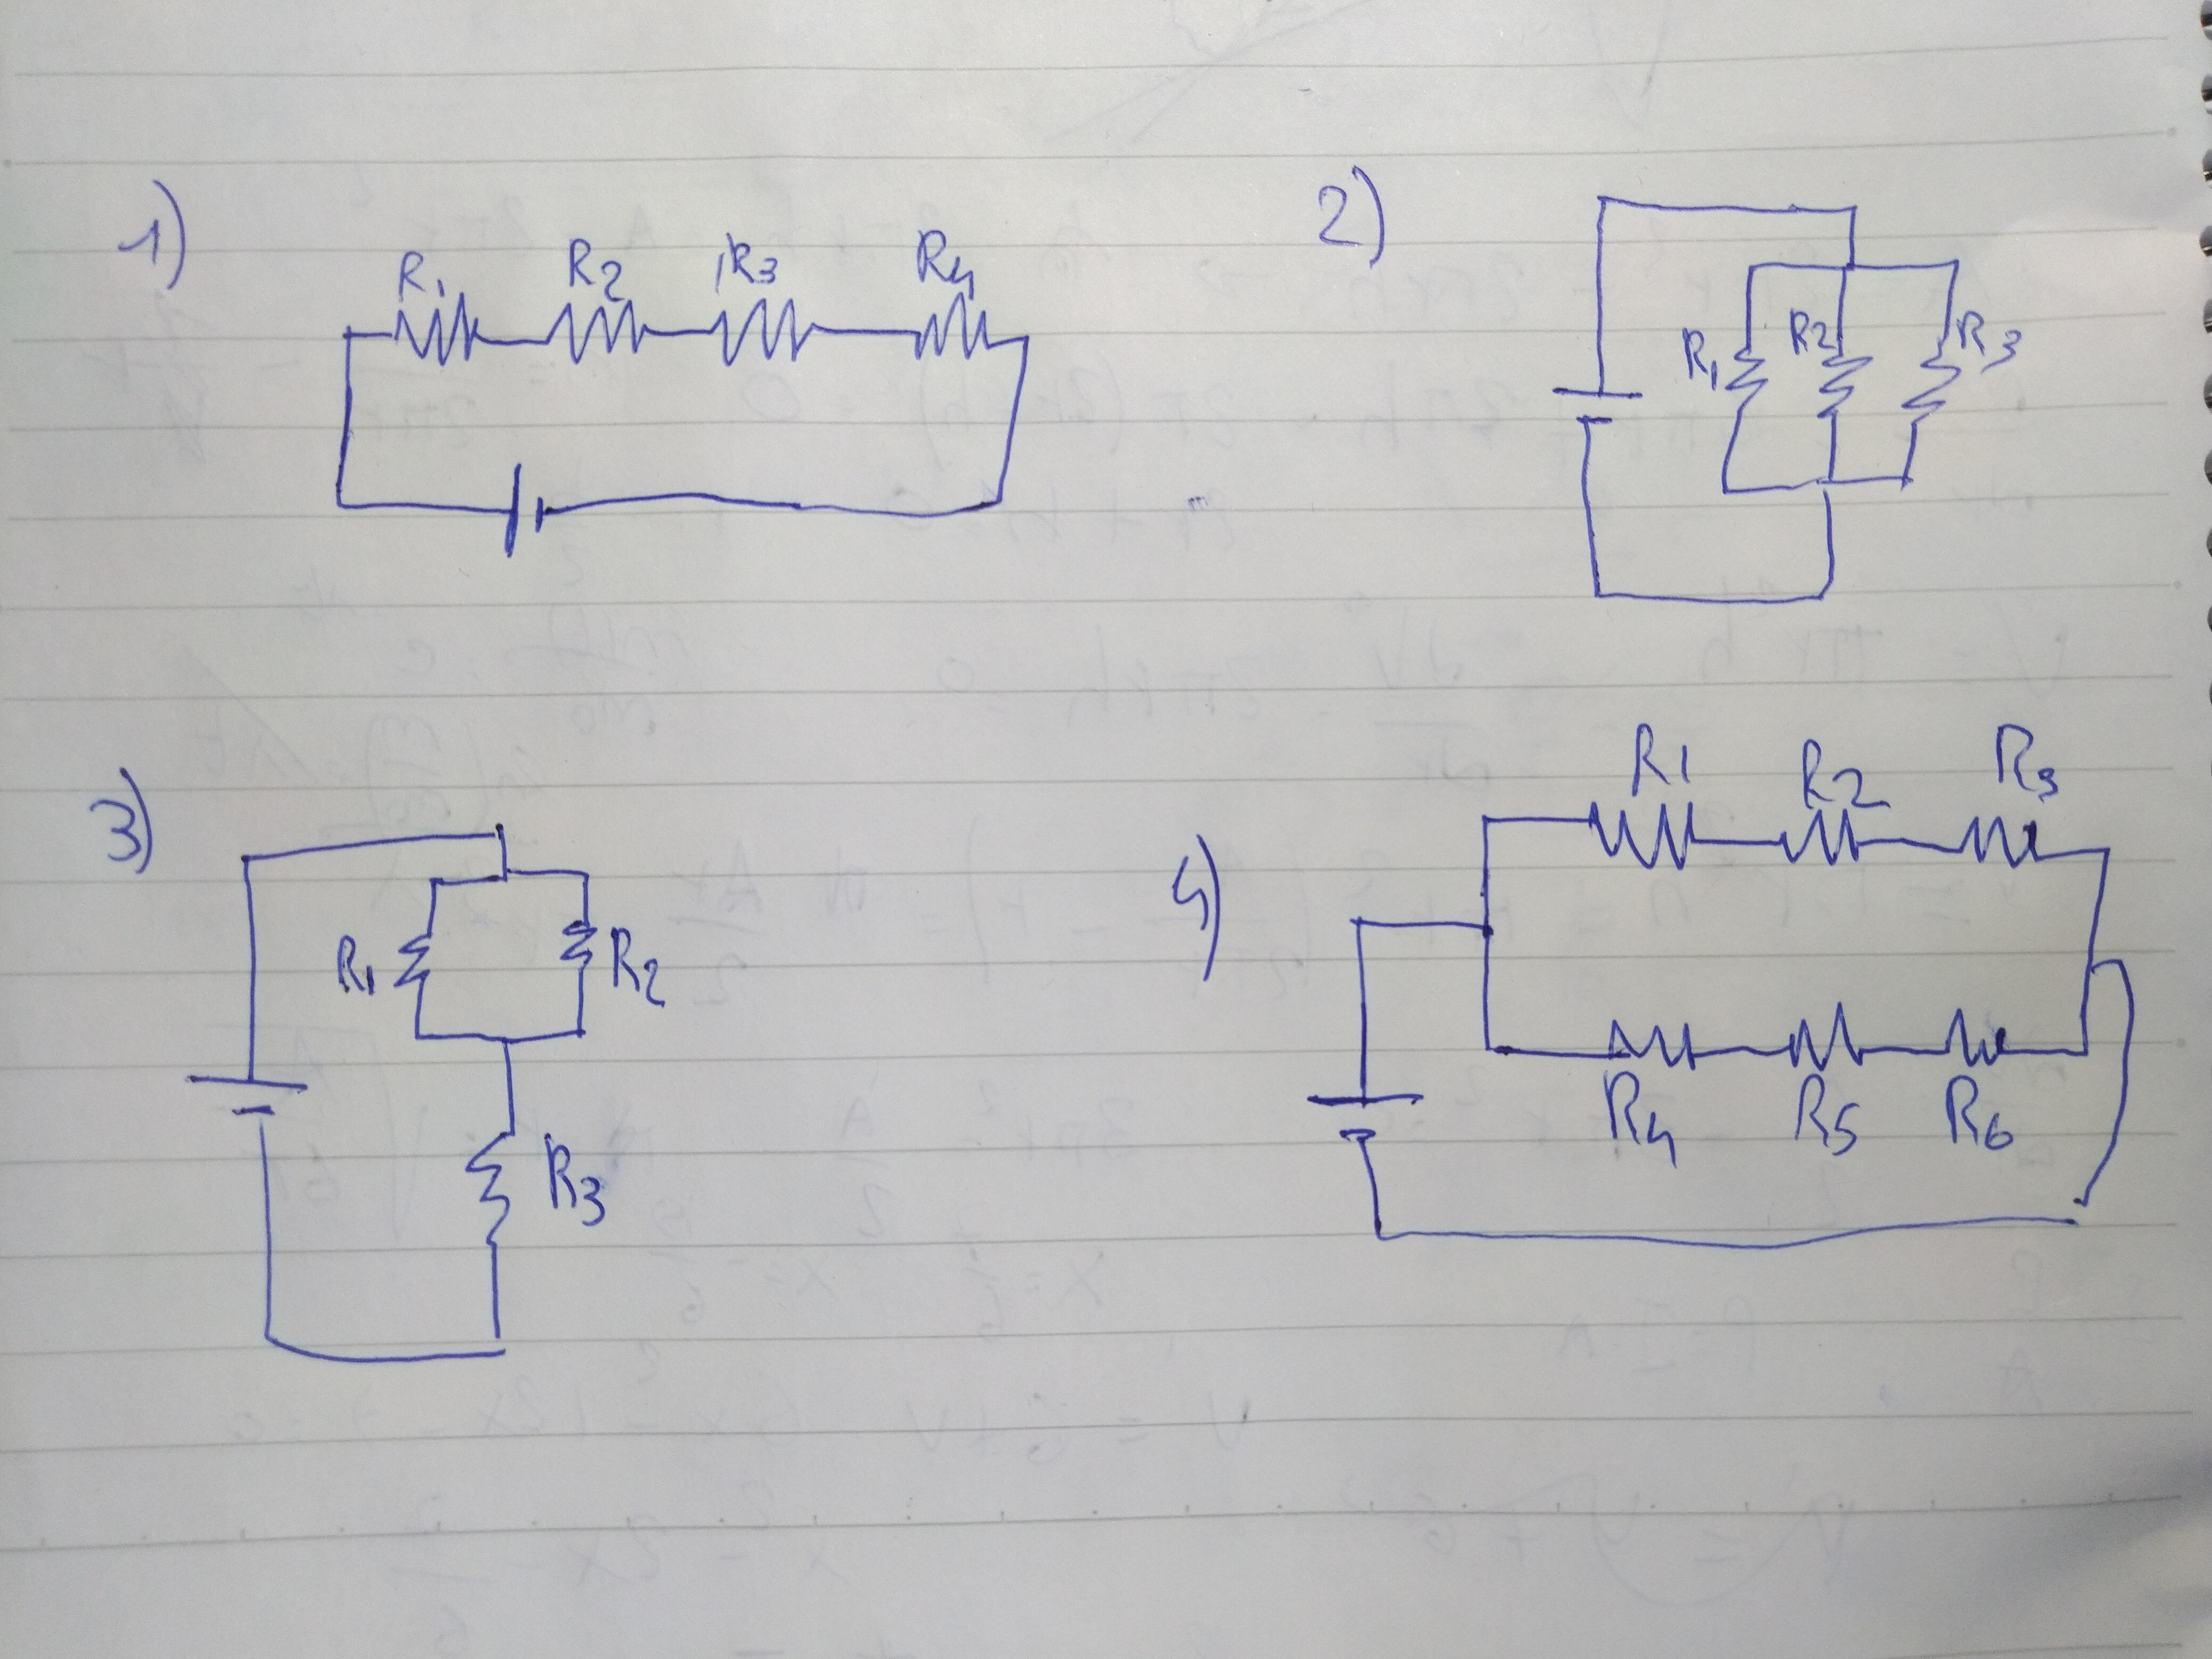 1)
R1 R2 R3 R4
2)
R1 R2 R3
3)
R1 R2
R3
4)
R1 R2 R3
R4 R5 R6